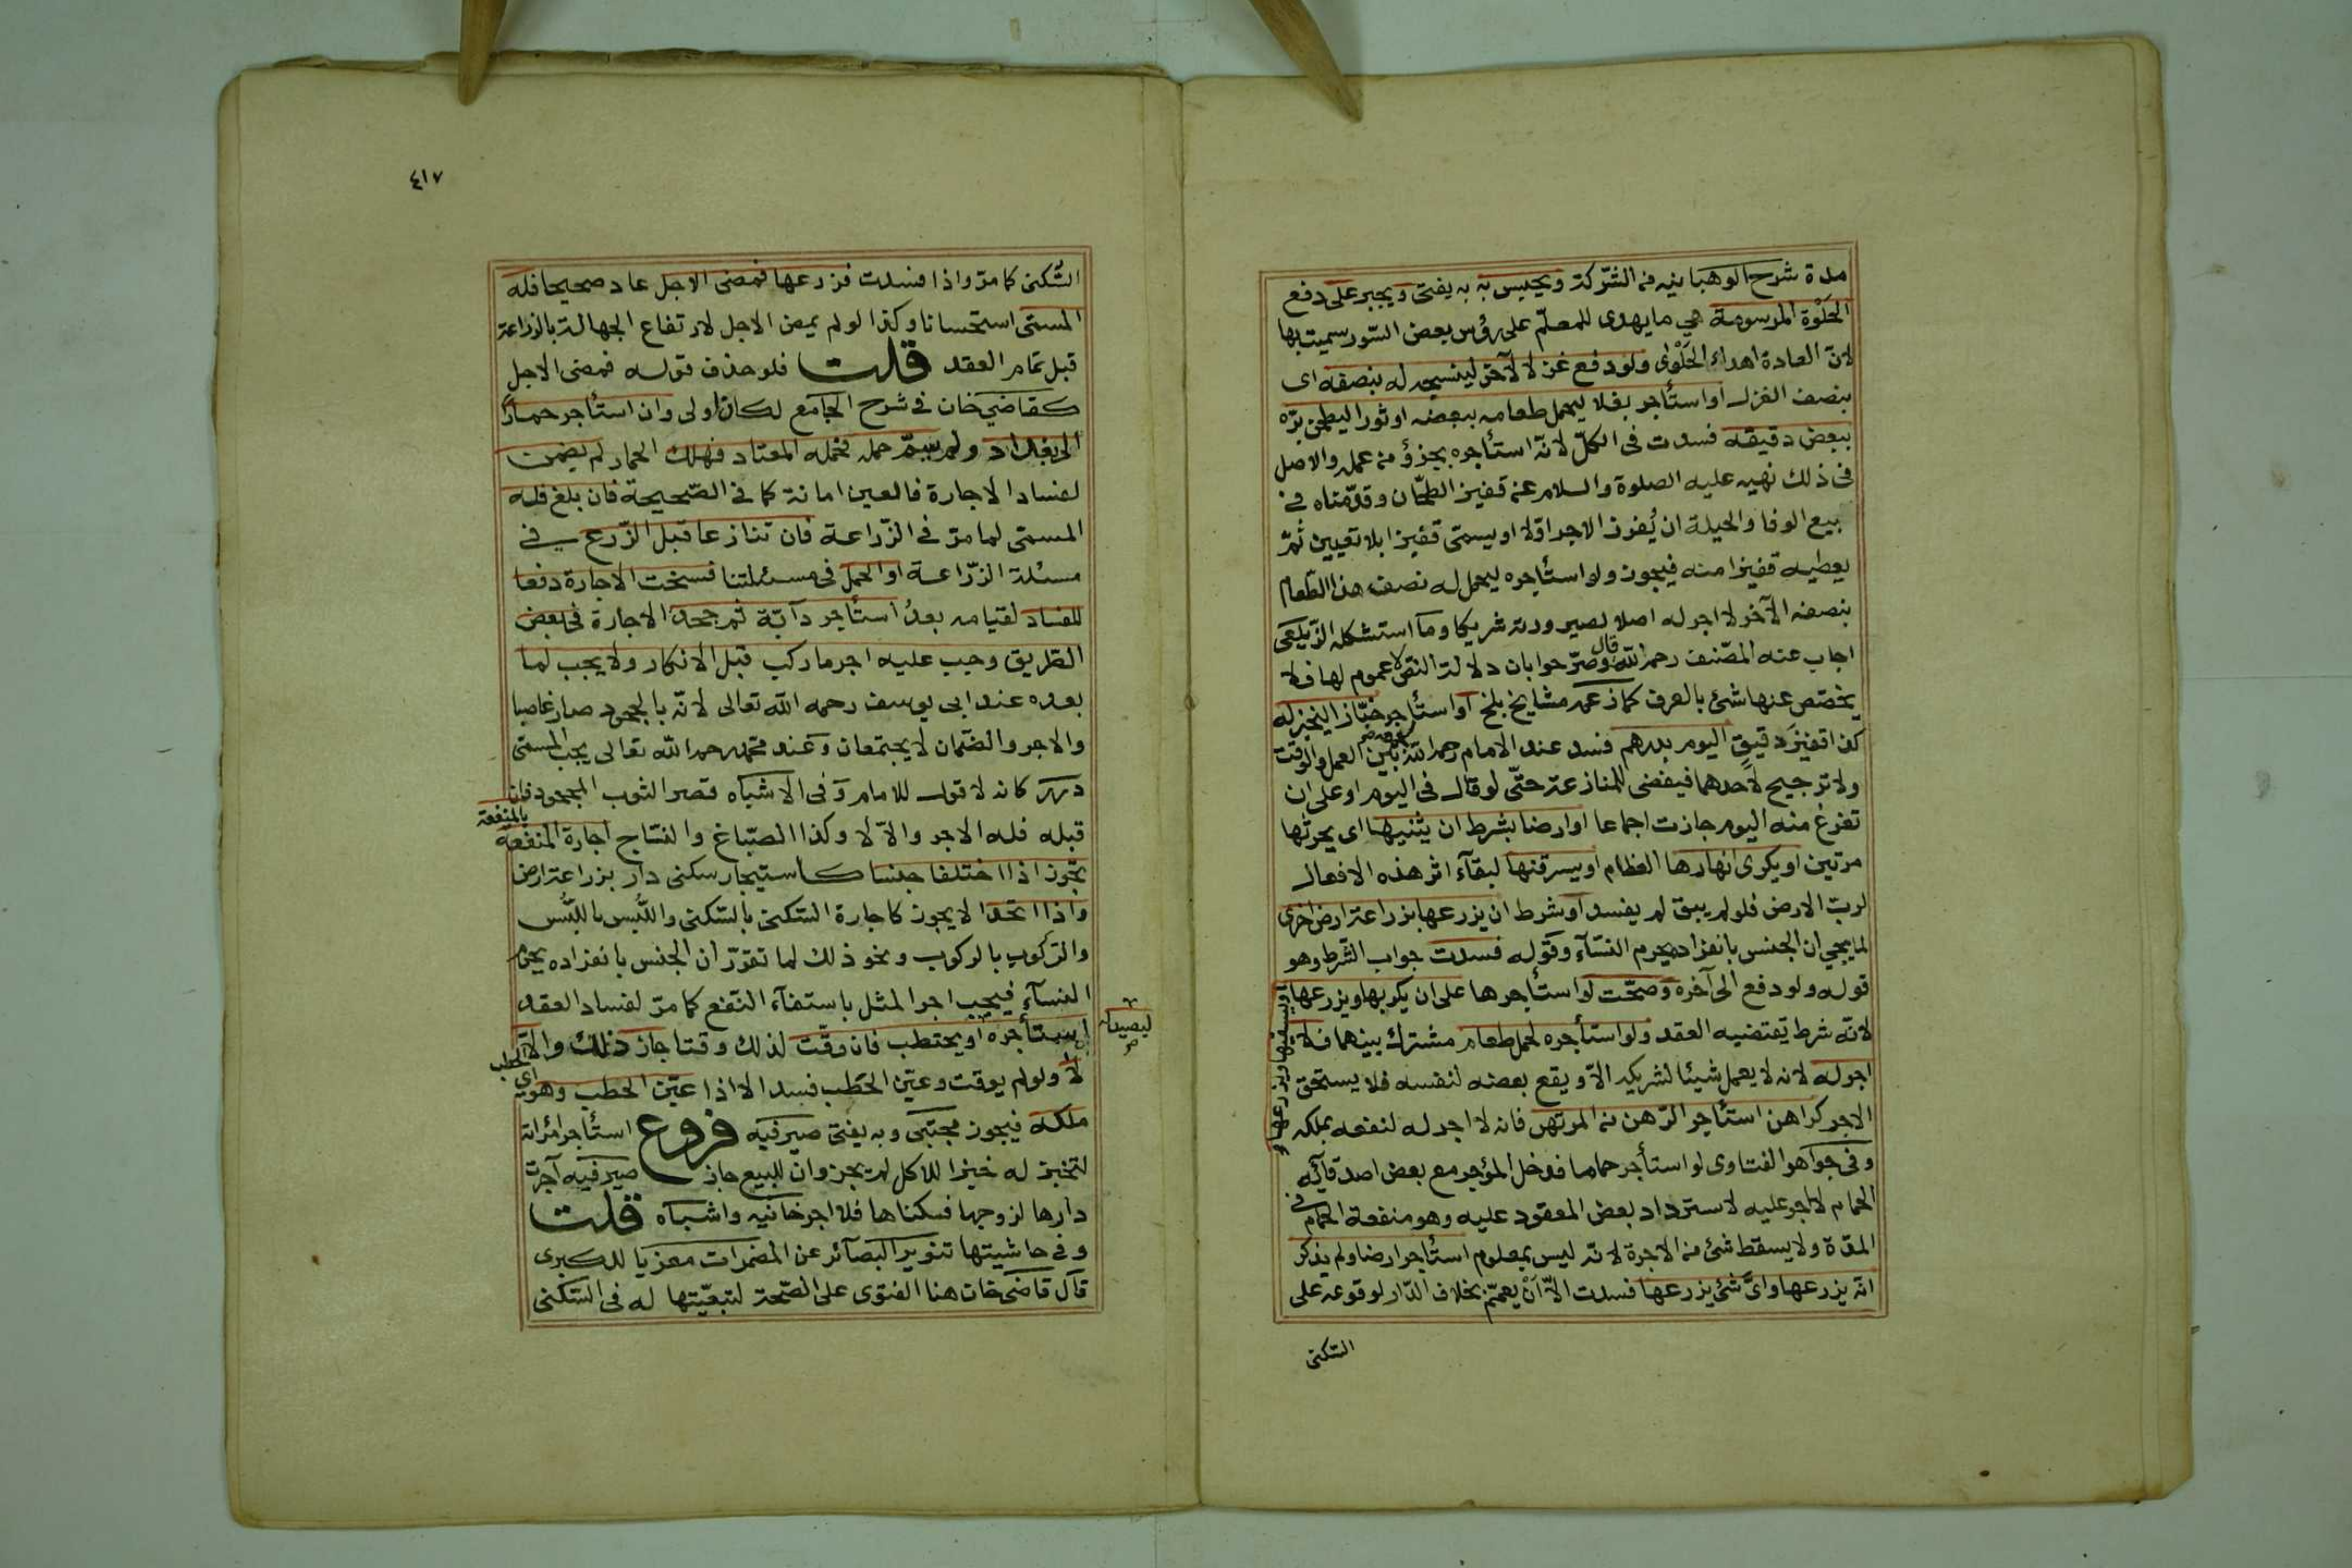 مدة شرح الوهبانيه من الشّركة ويحبس به به يفتى ويجبر على دفع
الحَلْوة المرسومة هي ما يهدى للمعلّم على رؤس بعض السّور سميت بها
لانّ العادة اهداء الحَلْوٰى ولو دفع غزلا لآخر لينسجه له بنصفه اى
بنصف الغزل او استأجر بغلا ليحمل طعامه ببعضه او ثورا ليطحن برّه
ببعض دقيقه فسدت فى الكلّ لانّه استأجره بجزؤ من عمله والاصل
فى ذلك نهيه عليه الصلوة والسلام عن قفيز الطحّان وقدّمناه فى
بيع الوفا والحيلة ان يُفرز الاجر اوّلا او يسمى قفيزا بلا تعيين ثمّ
يعطيه قفيزا منه فيجوز ولو استأجره ليحمل له نصف هذا الطّعام
بنصفه الآخر لا اجر له اصلا لصيرورته شريكا وما استشكله الزّيلعى
اجاب عنه المصّنف رحمه اللّه قال وصرّحوا بان دلالة النصّ لا عموم لها فلا
يخصّص عنها شئ بالعرف كما زعمه مشايخ بلخ او استأجر خبّازا ليخبز له
كذا قفيز دقيق اليوم بدرهم فسد عند الامام رحمه اللّه بين العمل والوقت
ولا ترجيح لاحدهما فيفضى للمنازعة حتّى لو قال فى اليوم او على ان
تفرغ منه اليوم جازت اجماعا او ارضا بشرط ان يثنيها اى يحرثها
مرتين او يكرى انهارها العظام او يسرقنها لبقآء اثر هذه الافعال
لربّ الارض فلو لم يبق لم يفسد او شرط ان يزرعها بزراعة ارض اخرى
لما يجي ان الجنس بانفراده يحرم النسآء وقوله فسدت جواب الشّرط وهو
قوله ولو دفع الى آخره وصحّت لو استأجرها على ان يكربها ويزرعها
او يسقيها ويزرعها
لانّه شرط يقتضيه العقد ولو استأجره لحمل طعام مشترك بينهما فلا
اجر له لانه لا يعمل شيئا لشريكه الاّ ويقع بعضه لنفسه فلا يستحق
الاجر كراهن استأجر الرّهن من المرتهن فانه لا اجر له لنفعه بملكه
وفى جواهر الفتاوى لو استأجر حماما فدخل المؤجر مع بعض اصدقآئه
الحمام لا اجر عليه لاسترداد بعض المعقود عليه وهو منفعة الحمام فى
المدّة ولا يسقط شئ من الاجرة لانّه ليس بمعلوم استأجر ارضا ولم يذكر
انّه يزرعها واىّ شئ يزرعها فسدت الاّ ان يعمّم بخلاف الدّار لوقوعه على
السّكنى
٤١٧
السّكنى كما مرّ واذا فسدت فزرعها فمضى الاجل عاد صحيحا فله
المسمّى استحسانا وكذا لو لم يمض الاجل لارتفاع الجهالة بالزراعة
قبل تمام العقد قلت فلو حذف قوله فمضى الاجل
كقاضى خان فى شرح الجامع لكان اولى وان استأجر حمارا
الى بغداد ولم يسمّ حمله فحمله المعتاد فهلك الحمار لم يضمن
لفساد الاجارة فالعين امانة كما فى الصّحيحة فان بلغ فله
المسمى لما مرّ فى الزّراعة فان تنازعا قبل الزّرع فى
مسئلة الزّراعة او الحمل فى مسئلتنا فسخت الاجارة دفعا
للفساد لقيامه بعدُ استأجر دآبّة ثم جحد الاجارة فى بعض
الطريق وجب عليه اجر ما ركب قبل الانكار ولا يجب لما
بعده عند ابى يوسف رحمه اللّه تعالى لانّه بالجحود صار غاصبا
والاجر والضّمان لا يجتمعان وعند محمد رحمه اللّه تعالى يجب المسمّى
درر كانه لا قول للامام وفى الاشباه قصر الثوب المجحود فان
قبله فله الاجر والاّ لا وكذا الصّباغ والنسّاج اجارة المنفعة بالمنفعة
تجوز اذا اختلفا جنسا كاستيجار سكنى دار بزراعة ارض
واذا اتحدا لا يجوز كاجارة السّكنى بالسّكنى واللُّبس باللُّبس
والرّكوب بالركوب ونحو ذلك لما تقرّر ان الجنس بانفراده يحرم
النسآء فيجب اجر المثل باستفآء النّفع كما مرّ لفساد العقد
استأجره ليصيد له او يحتطب فان وقّت لذلك وقتا جاز ذلك والاّ
لا ولو لم يوقت وعيّن الحَطَب فسد الا اذا عيّن الحَطب وهو اى الحطب
ملكه فيجوز مجتبى وبه يفتى صيرفيه فروع استأجر امرأته
لتخبز له خبزا للاكل لم يجز وان للبيع جاز صيرفيه آجرت
دارها لزوجها فسكناها فلا اجر خانيه واشباه قلت
وفى حاشيتها تنوير البصآئر عن المضمرات معزيا للكبرى
قال قاضى خان هنا الفتوى على الصّحة لتبعيّتها له فى السّكنى